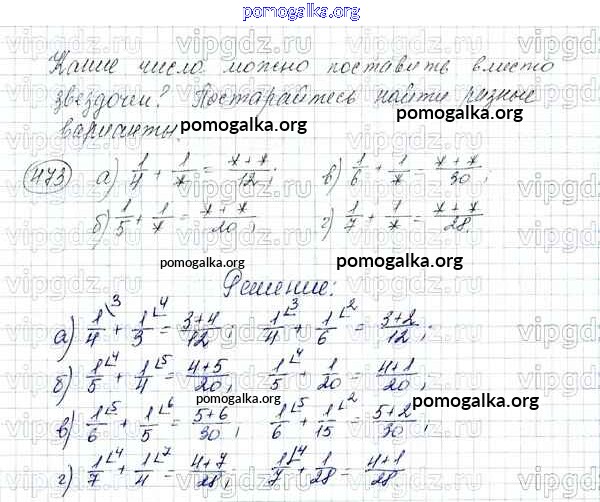 pomogalka.org
Какие числа можно поставить вместо
звёздочки? Постарайтесь найти разные
варианты.
pomogalka.org
473 а) 1/4 + 1/* = *+*/12; в) 1/6 + 1/* = *+*/30;
б) 1/5 + 1/* = *+*/20; г) 1/7 + 1/* = *+*/28.
pomogalka.org pomogalka.org
Решение:
а) 1/4 \3 + 1/3 \4 = 3+4/12; 1/4 \3 + 1/6 \2 = 3+2/12;
б) 1/5 \4 + 1/4 \5 = 4+5/20; 1/5 \4 + 1/20 = 4+1/20;
pomogalka.org
в) 1/6 \5 + 1/5 \6 = 5+6/30; 1/6 \5 + 1/15 \2 = 5+2/30;
г) 1/7 \4 + 1/4 \7 = 4+7/28; 1/7 \4 + 1/28 = 4+1/28.
pomogalka.org
vipgdz.ru